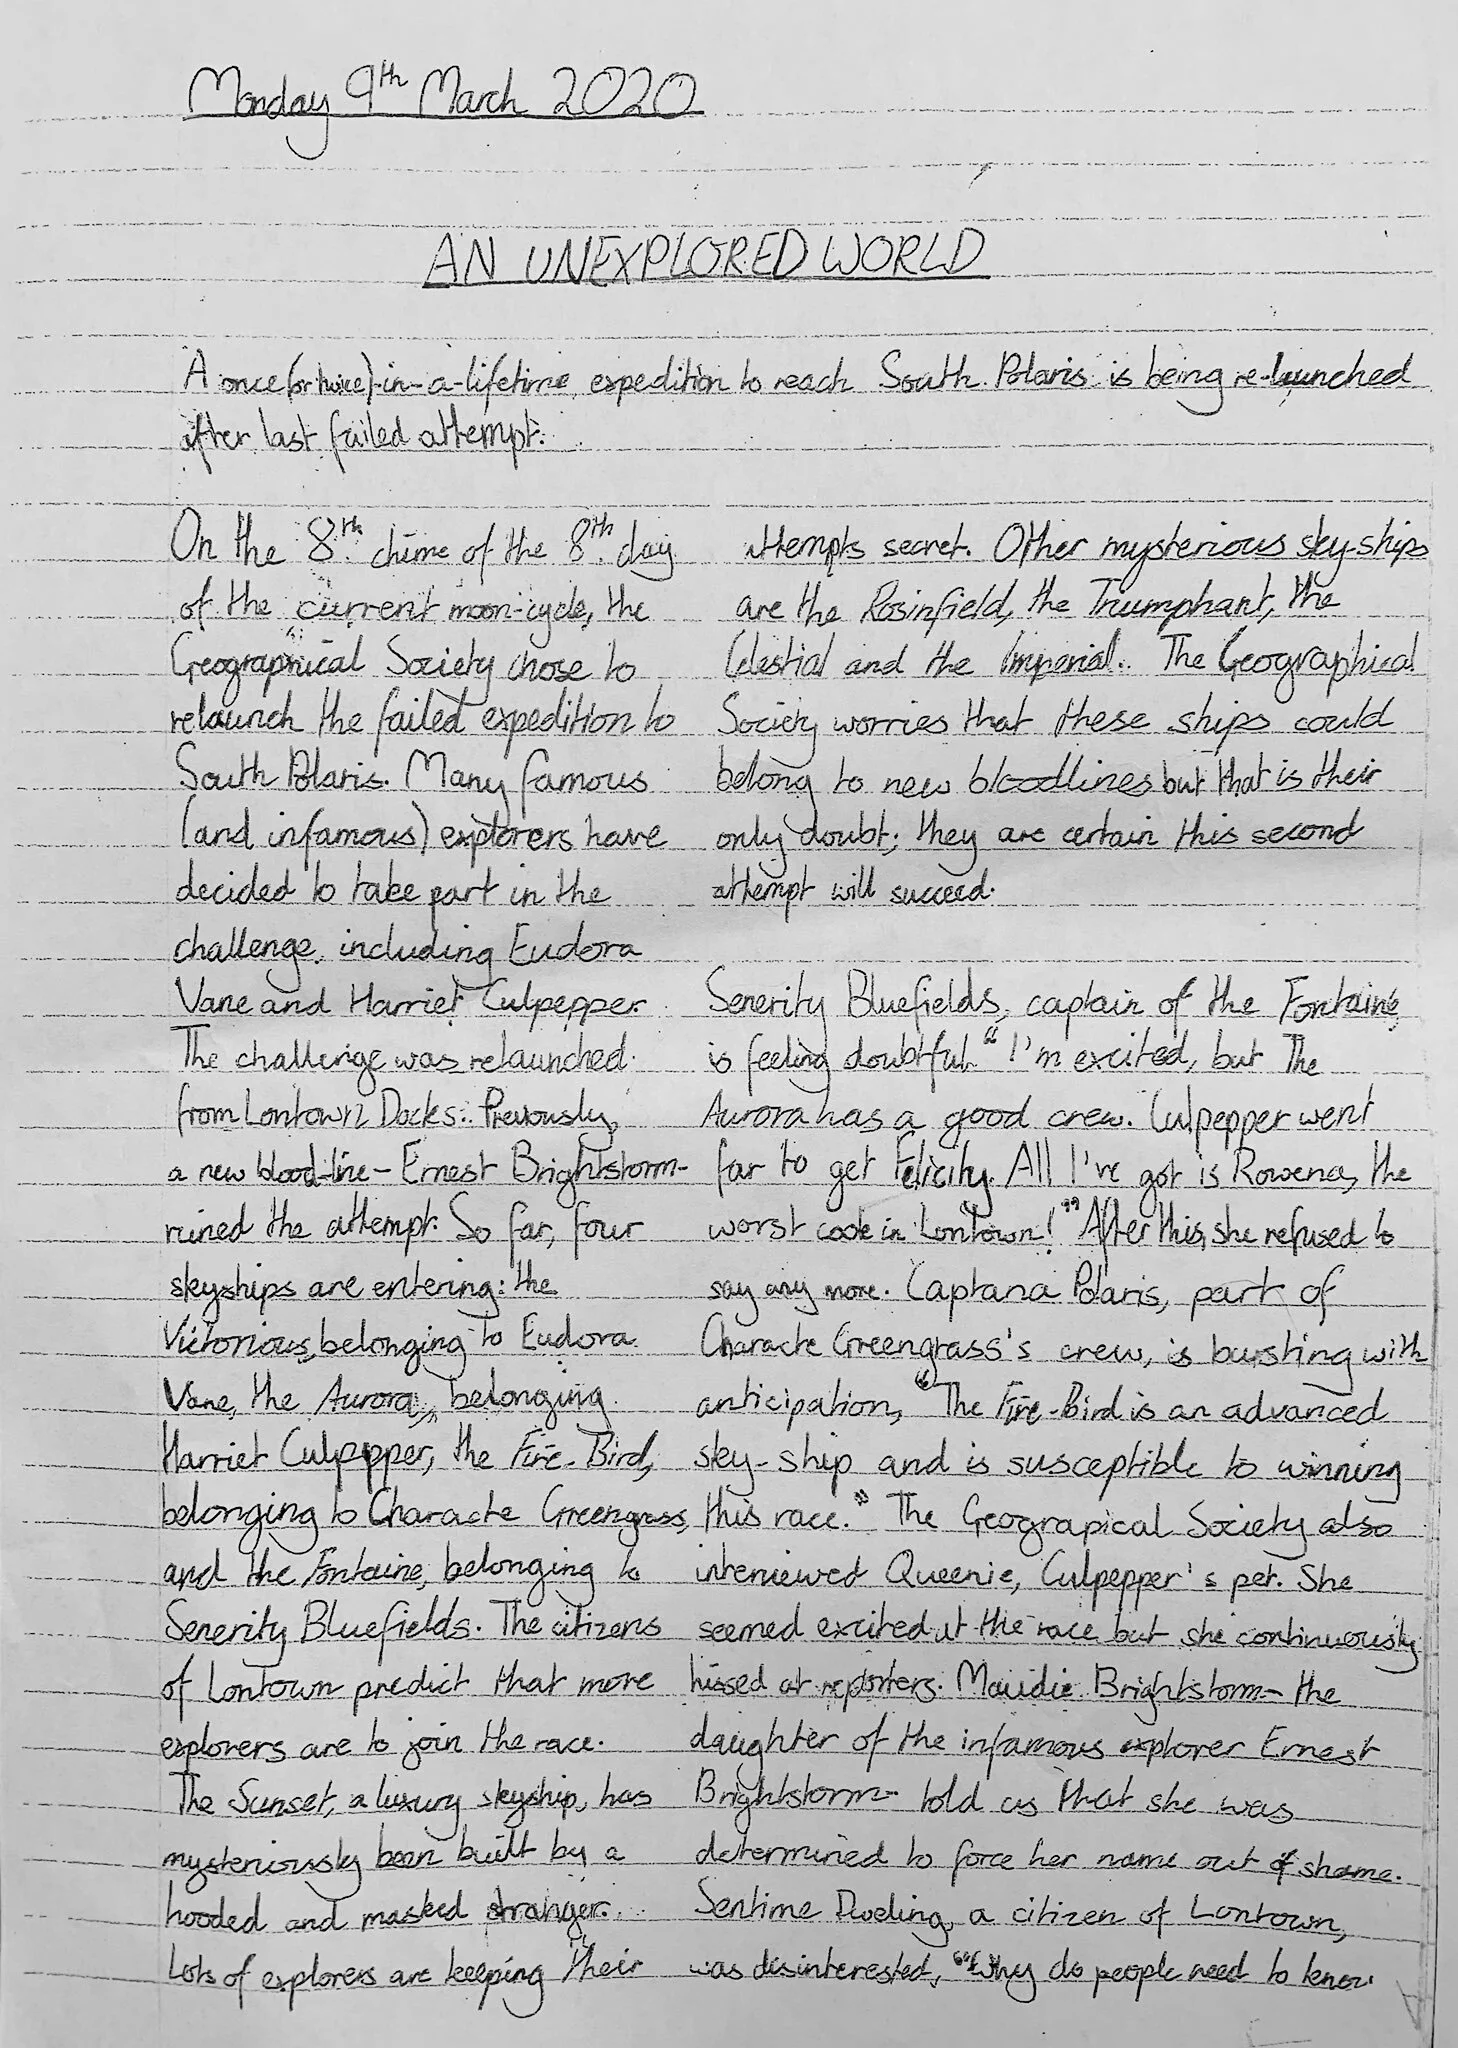 Monday 9th March 2020
AN UNEXPLORED WORLD
A once (or twice)-in-a-lifetime expedition to reach South Polaris is being re-launched
after last failed attempt.
On the 8th chime of the 8th day
of the current moon-cycle, the
Geographical Society chose to
relaunch the failed expedition to
South Polaris. Many famous
(and infamous) explorers have
decided to take part in the
challenge, including Eudora
Vane and Harriet Culpepper.
The challenge was relaunched
from Lontown Docks. Previously,
a new blood-line - Ernest Brightstorm-
ruined the attempt. So far, four
skyships are entering: the
Victorious, belonging to Eudora
Vane, the Aurora, belonging
Harriet Culpepper, the Fire-Bird,
belonging to Characte Greengrass,
and the Fontaine, belonging to
Senerity Bluefields. The citizens
of Lontown predict that more
explorers are to join the race.
The Sunset, a luxury skyship, has
mysteriously been built by a
hooded and masked stranger.
Lots of explorers are keeping their
attempts secret. Other mysterious sky-ships
are the Rosinfield, the Triumphant, the
Celestial and the Imperial. The Geographical
Society worries that these ships could
belong to new bloodlines but that is their
only doubt; they are certain this second
attempt will succeed.
Senerity Bluefields, captain of the Fontaine,
is feeling doubtful. "I'm excited, but The
Aurora has a good crew. Culpepper went
far to get Felicity. All I've got is Rowena, the
worst cook in Lontown!" After this, she refused to
say any more. Captana Polaris, part of
Characte Greengrass's crew, is bursting with
anticipation, "The Fire-Bird is an advanced
sky-ship and is susceptible to winning
this race." The Geograpical Society also
interviewed Queenie, Culpepper's pet. She
seemed excited at the race but she continuously
hissed at reporters. Maudie Brightstorm - the
daughter of the infamous explorer Ernest
Brightstorm - told us that she was
determined to force her name out of shame.
Sentime Dweling, a citizen of Lontown,
was disinterested, "Why do people need to know